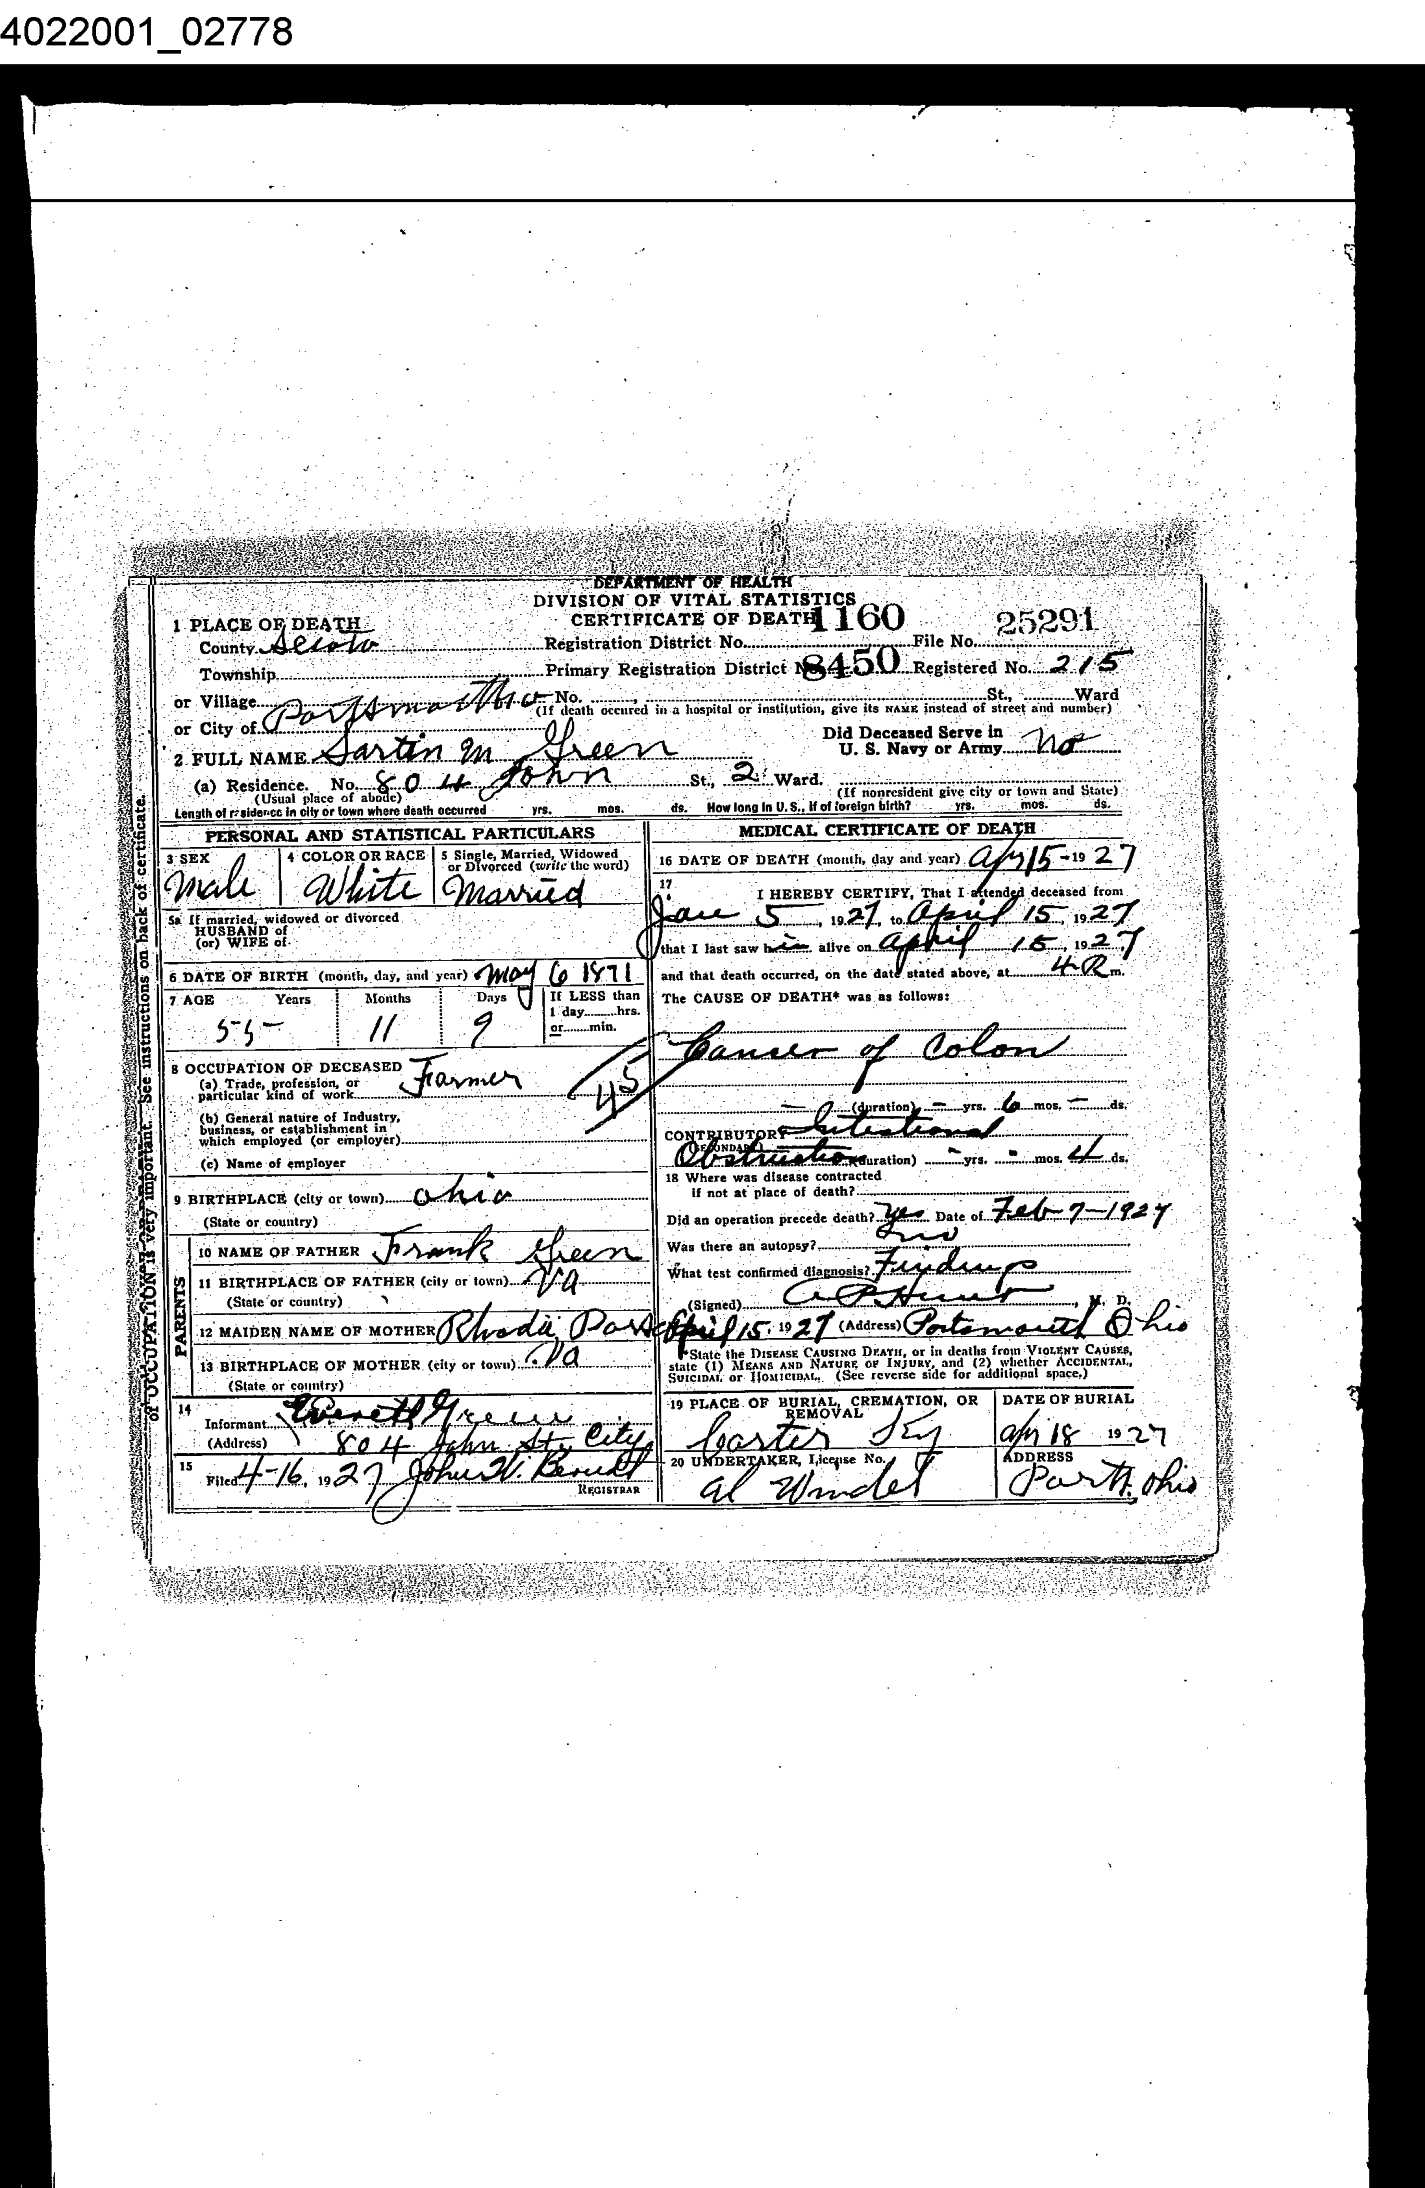 4022001_02778
DEPARTMENT OF HEALTH
DIVISION OF VITAL STATISTICS
CERTIFICATE OF DEATH
1 PLACE OF DEATH
County Scioto Registration District No. 1160 File No. 25291
Township Primary Registration District No. 8450 Registered No. 215
or Village No. St., Ward
(If death occured in a hospital or institution, give its NAME instead of street and number)
or City of Portsmouth O
2 FULL NAME Sartin M Green Did Deceased Serve in U. S. Navy or Army No
(a) Residence. No. 804 John St., 2 Ward.
(Usual place of abode) (If nonresident give city or town and State)
Length of residence in city or town where death occurred yrs. mos. ds. How long in U. S., if of foreign birth? yrs. mos. ds.
of OCCUPATION is very important. See instructions on back of certificate.
PERSONAL AND STATISTICAL PARTICULARS
3 SEX Male
4 COLOR OR RACE White
5 Single, Married, Widowed or Divorced (write the word) Married
5a If married, widowed or divorced
HUSBAND of
(or) WIFE of
6 DATE OF BIRTH (month, day, and year) May 6 1871
7 AGE Years Months Days If LESS than
1 day hrs.
or min.
55 11 9
8 OCCUPATION OF DECEASED
(a) Trade, profession, or
particular kind of work Farmer
45
(b) General nature of Industry,
business, or establishment in
which employed (or employer)
(c) Name of employer
9 BIRTHPLACE (city or town) Ohio
(State or country)
PARENTS
10 NAME OF FATHER Frank Green
11 BIRTHPLACE OF FATHER (city or town) Va
(State or country)
12 MAIDEN NAME OF MOTHER Rhoda
13 BIRTHPLACE OF MOTHER (city or town) Va
(State or country)
14
Informant Everett Green
(Address) 804 John St, City
15
Filed 4-16, 1927 John W.
REGISTRAR
MEDICAL CERTIFICATE OF DEATH
16 DATE OF DEATH (month, day and year) Apr 15-1927
17
I HEREBY CERTIFY, That I attended deceased from
Jan 5, 1927, to April 15, 1927
that I last saw him alive on April 15, 1927
and that death occurred, on the date stated above, at 4 P m.
The CAUSE OF DEATH* was as follows:
Cancer of Colon
(duration) – yrs. 6 mos. – ds.
CONTRIBUTORY Intestional
(SECONDARY)
Obstruction (duration) – yrs. – mos. 4 ds.
18 Where was disease contracted
if not at place of death?
Did an operation precede death? Yes Date of Feb 7-1927
Was there an autopsy? No
What test confirmed diagnosis? Findings
(Signed) A P Hunt, M. D.
April 15, 1927 (Address) Portsmouth Ohio
*State the DISEASE CAUSING DEATH, or in deaths from VIOLENT CAUSES,
state (1) MEANS AND NATURE OF INJURY, and (2) whether ACCIDENTAL,
SUICIDAL or HOMICIDAL. (See reverse side for additional space.)
19 PLACE OF BURIAL, CREMATION, OR REMOVAL
Carter Ky
DATE OF BURIAL
Apr 18 1927
20 UNDERTAKER, License No.
Al Windel
ADDRESS
Porth. Ohio